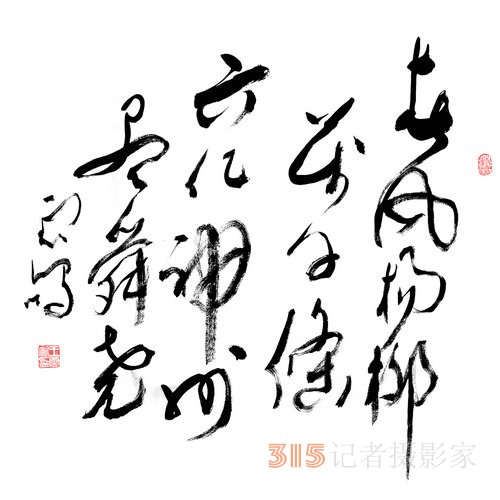 春风杨柳
万千條
六亿神州
尽舜尧
315记者摄影家